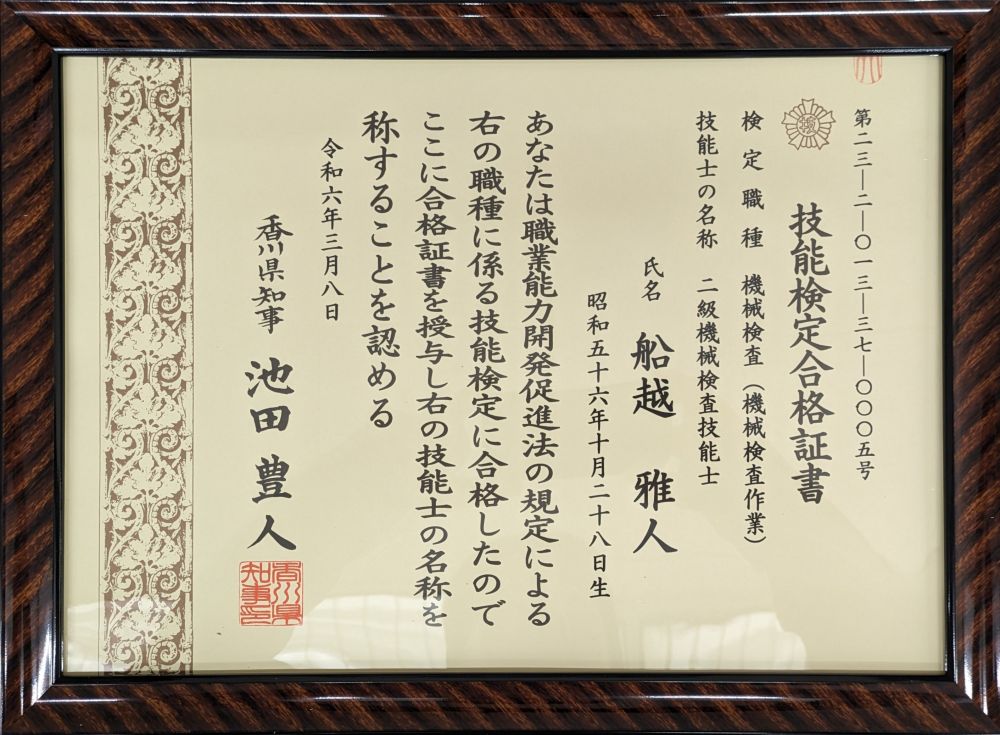 第二三―二―〇一三―三七―〇〇〇五号
技能検定合格証書
検定職種 機械検査（機械検査作業）
技能士の名称 二級機械検査技能士
氏名 船越 雅人
昭和五十六年十月二十八日生
あなたは職業能力開発促進法の規定による
右の職種に係る技能検定に合格したので
ここに合格証書を授与し右の技能士の名称を
称することを認める
令和六年三月八日
香川県知事 池田豊人
香川県
知事印